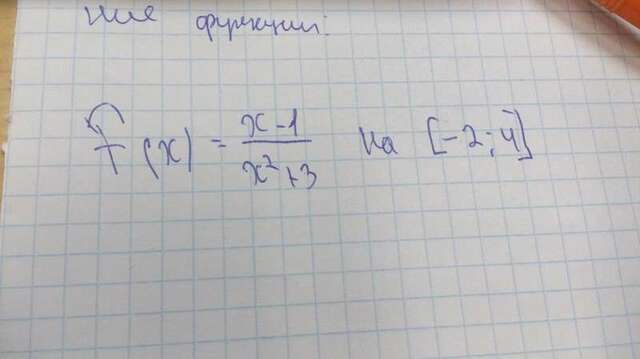 ние функции:
f(x) = \frac{x-1}{x^2+3} на [-2; 4]